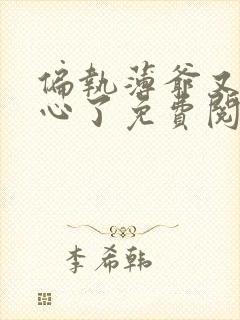 偏執薄爺又
心了免費閱
李希韩